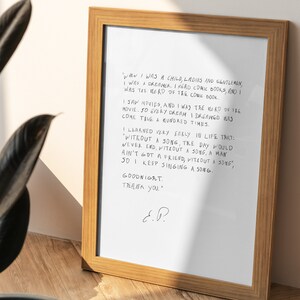 "WHEN I WAS A CHILD, LADIES AND GENTLEMEN,
I WAS A DREAMER. I READ COMIC BOOKS, AND I
WAS THE HERO OF THE COMIC BOOK.
I SAW MOVIES, AND I WAS THE HERO OF THE
MOVIE. SO EVERY DREAM I DREAMED HAS
COME TRUE A HUNDRED TIMES.
I LEARNED VERY EARLY IN LIFE THAT:
"WITHOUT A SONG, THE DAY WOULD
NEVER END; WITHOUT A SONG, A MAN
AIN'T GOT A FRIEND; WITHOUT A SONG",
SO I KEEP SINGING A SONG.
GOODNIGHT.
THANK YOU"
E.P.